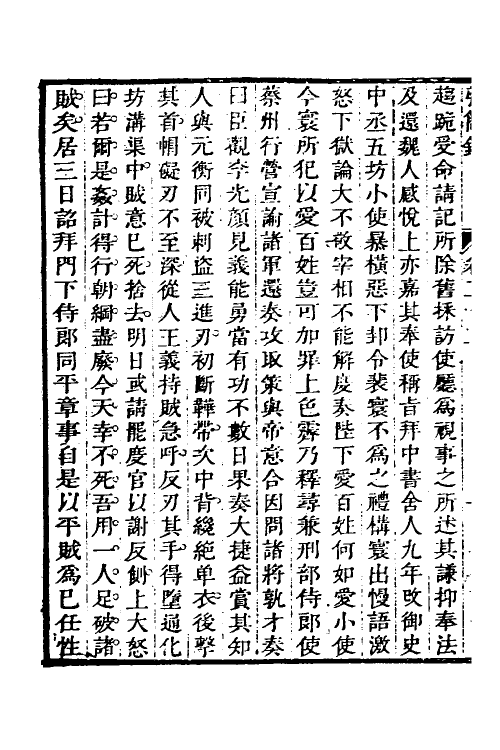 趨跪受命請記所除舊採訪使廳為視事之所述其謙抑奉法
及還魏人感悅上亦嘉其奉使稱旨拜中書舍人九年改御史
中丞五坊小使暴橫惡下邽令裴寰不為之禮構寰出慢語激
怒下獄論大不敬宰相不能解度奏陛下愛百姓何如愛小使
今寰所犯以愛百姓豈可加罪上色霽乃釋尋兼刑部侍郎使
蔡州行營宣諭諸軍還奏攻取策與帝意合因問諸將孰才奏
曰臣觀李光顏見義能勇當有功不數日果奏大捷益賞其知
人與元衡同被刺盜三進刃初斷鞾帶次中背纔絕单衣後擊
其首㡌礙刃不至深從人王義持賊急呼反刃其手得墮通化
坊溝渠中賊意已死捨去明日或請罷度官以謝反側上大怒
曰若爾是姦計得行朝綱盡廢今天幸不死吾用一人足破諸
賊矣居三日詔拜門下侍郎同平章事自是以平賊為已任性